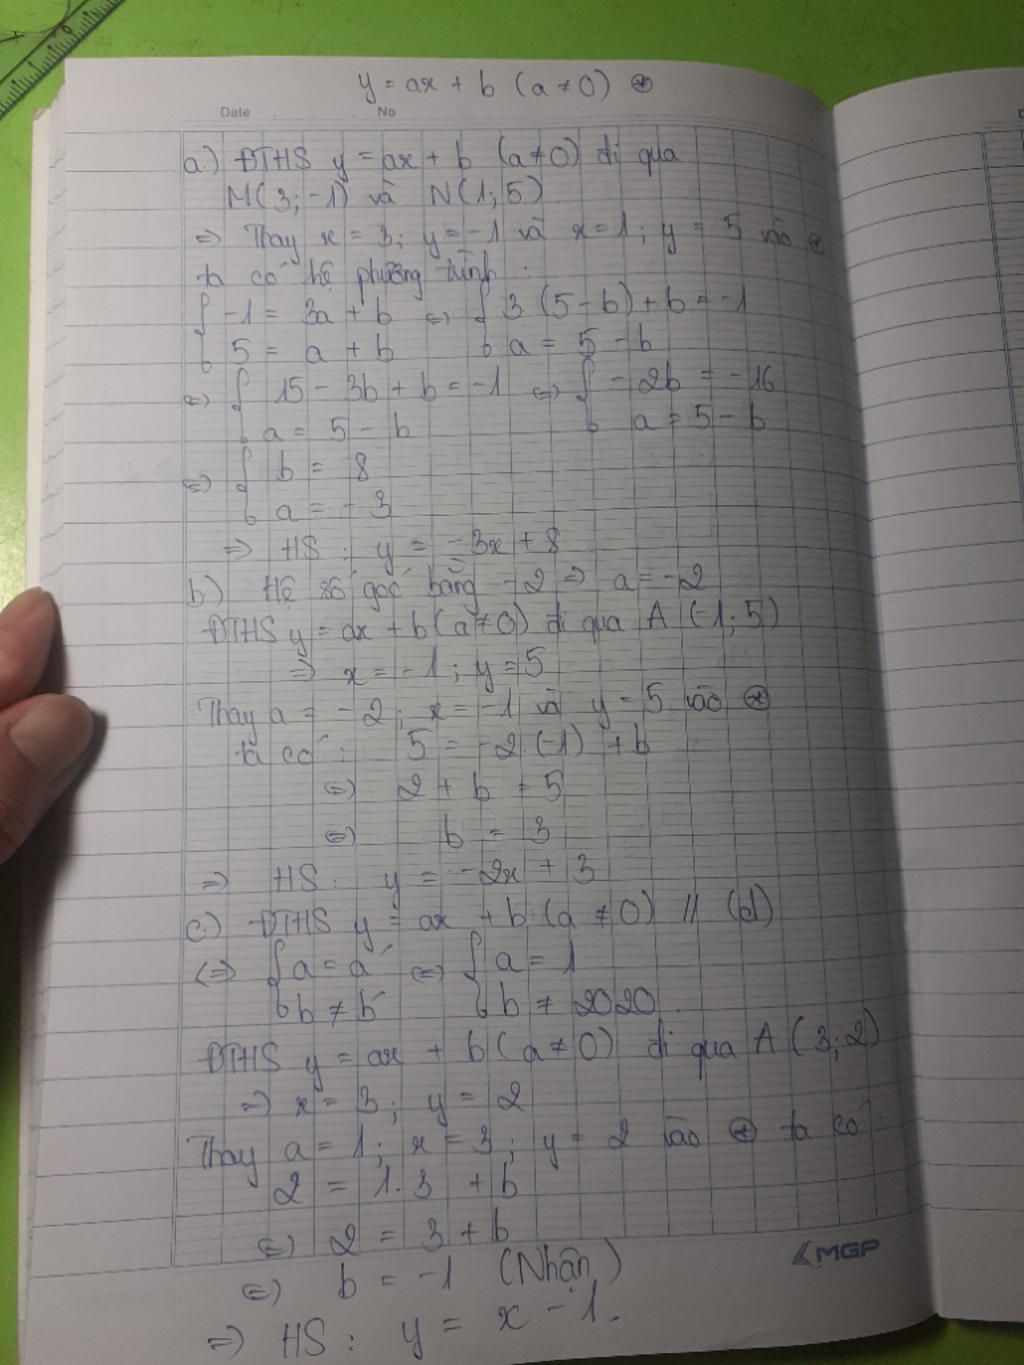 y = ax + b (a ≠ 0) ⊛
Date No
a.) ĐTHS y = ax + b (a ≠ 0) đi qua
M(3; -1) và N(1; 5)
=> Thay x = 3; y = -1 và x = 1; y = 5 vào ⊛
ta có hệ phương trình :
{ -1 = 3a + b <=> { 3 (5 - b) + b = -1
5 = a + b a = 5 - b
<=> { 15 - 3b + b = -1 <=> { -2b = -16
a = 5 - b a = 5 - b
<=> { b = 8
a = -3
=> HS : y = -3x + 8
b) Hệ số góc bằng -2 => a = -2
ĐTHS y = ax + b (a ≠ 0) đi qua A (-1; 5)
=> x = -1; y = 5
Thay a = -2; x = -1 và y = 5 vào ⊛
ta có : 5 = -2.(-1) + b
<=> 2 + b = 5
<=> b = 3
=> HS : y = -2x + 3
c.) ĐTHS y = ax + b (a ≠ 0) // (d)
<=> { a = a' <=> { a = 1
b ≠ b' b ≠ 2020.
ĐTHS y = ax + b (a ≠ 0) đi qua A (3; 2)
=> x = 3; y = 2
Thay a = 1; x = 3; y = 2 vào ⊛ ta có
2 = 1.3 + b
<=> 2 = 3 + b
MGP
<=> b = -1 (Nhận)
=> HS : y = x - 1.